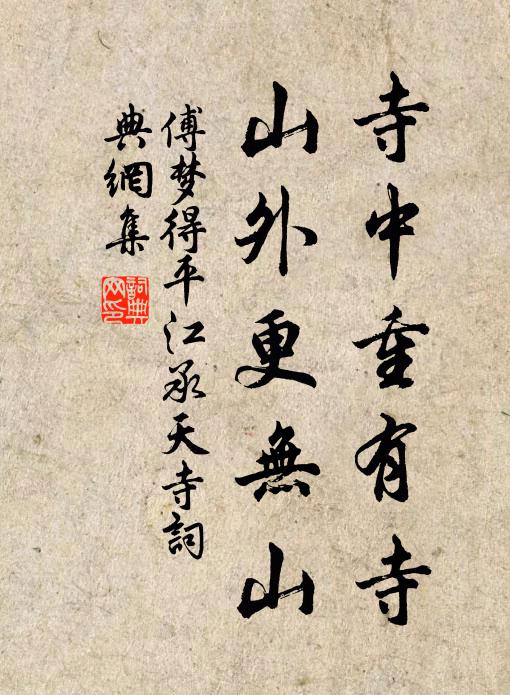 寺中重有寺
山外更無山
傅梦得平江承天寺詞
典網集
詞典網印